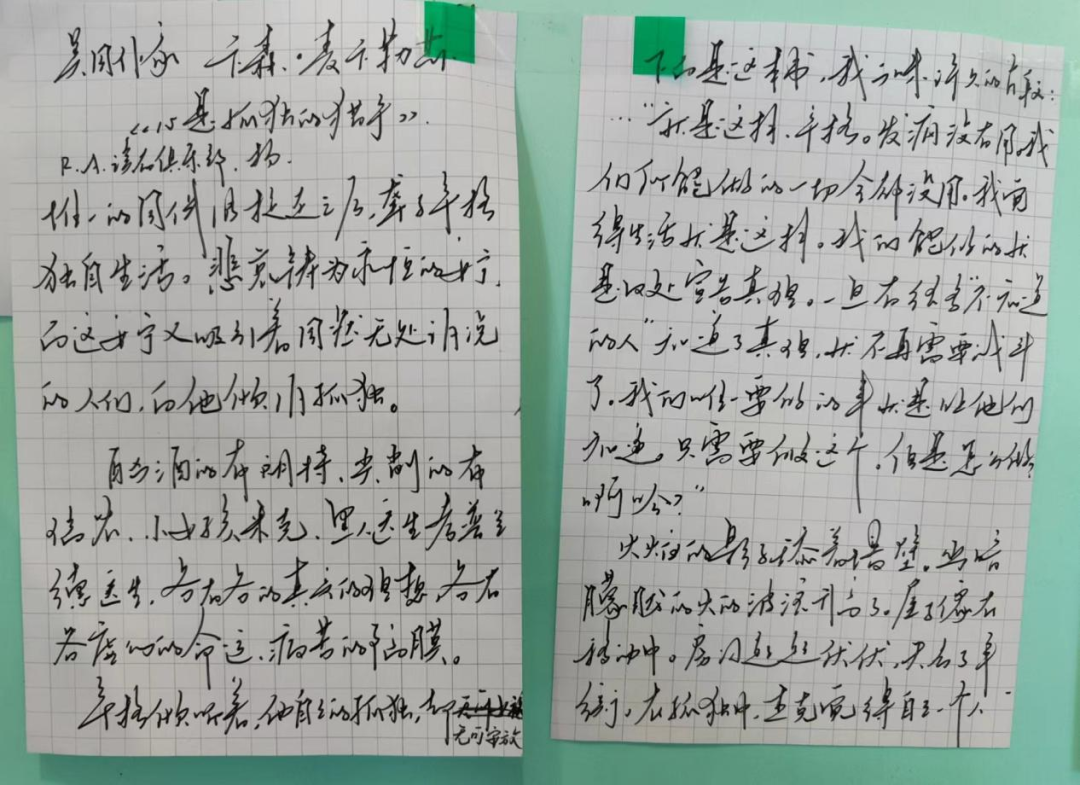 美国作家 卡森·麦卡勒斯
《心是孤独的猎手》
R.A.读者俱乐部. 杨.
唯一的同伴被赶走之后,聋子辛格
独自生活。悲哀铸为永恒的安宁,
而这安宁又吸引着周愁无处诉说
的人们,向他倾诉孤独。
酗酒的布朗特、
瑞农、小女孩米克、黑人医生考普兰
德医生,各有各的真实的理想,各有
各虚幻的命运、病苦的隔膜。
辛格倾听着,他自己的孤独,却
无可安放
下面是这本书,我回味许久的片段:
…"就是这样,辛格。发疯没有用。我
们所能做的一切全都没用。我觉
得生活就是这样。我们能做的就
是四处宣告真理。一旦有很多"不知道
的人"知道了真理,就不再需要战斗
了。我们唯一要做的事就是让他们
知道。只需要做这个。但是怎么做
啊哈?"
火焰的影子舔着墙壁。
朦胧的火的波浪升高了。屋子像在
移动中。房间起起伏伏,失去了平
衡,在孤独中,杰克觉得自己一个人